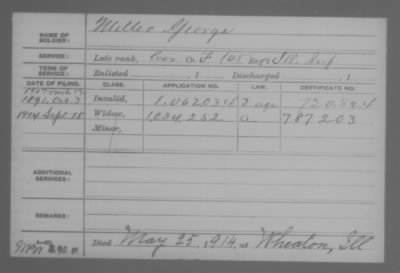 NAME OF SOLDIER: Miller George
SERVICE: Late rank, Co. F 105 Reg't Ill. Inf
TERM OF SERVICE: Enlisted , 1 Discharged , 1
DATE OF FILING. CLASS. APPLICATION NO. LAW. CERTIFICATE NO.
1891 Oct. 3 Invalid, 1,062034 720,884
1914 Sept 18 Widow, 1034,252 a 787203
Minor,
ADDITIONAL SERVICES:
REMARKS:
Died May 25, 1914 at Wheaton, Ill